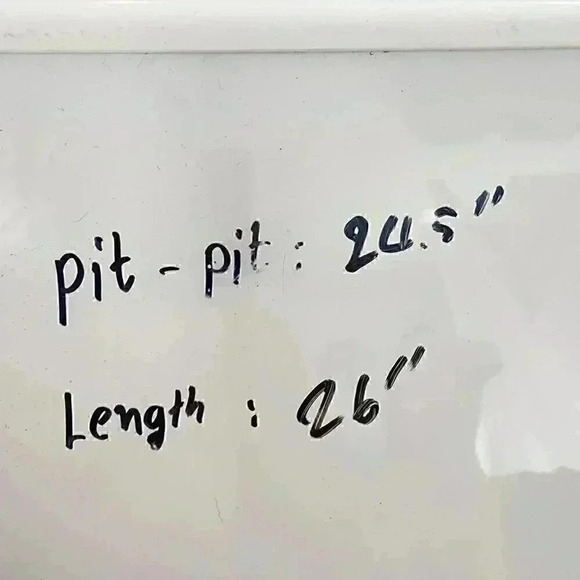 pit - pit : 24.5"
Length : 26"